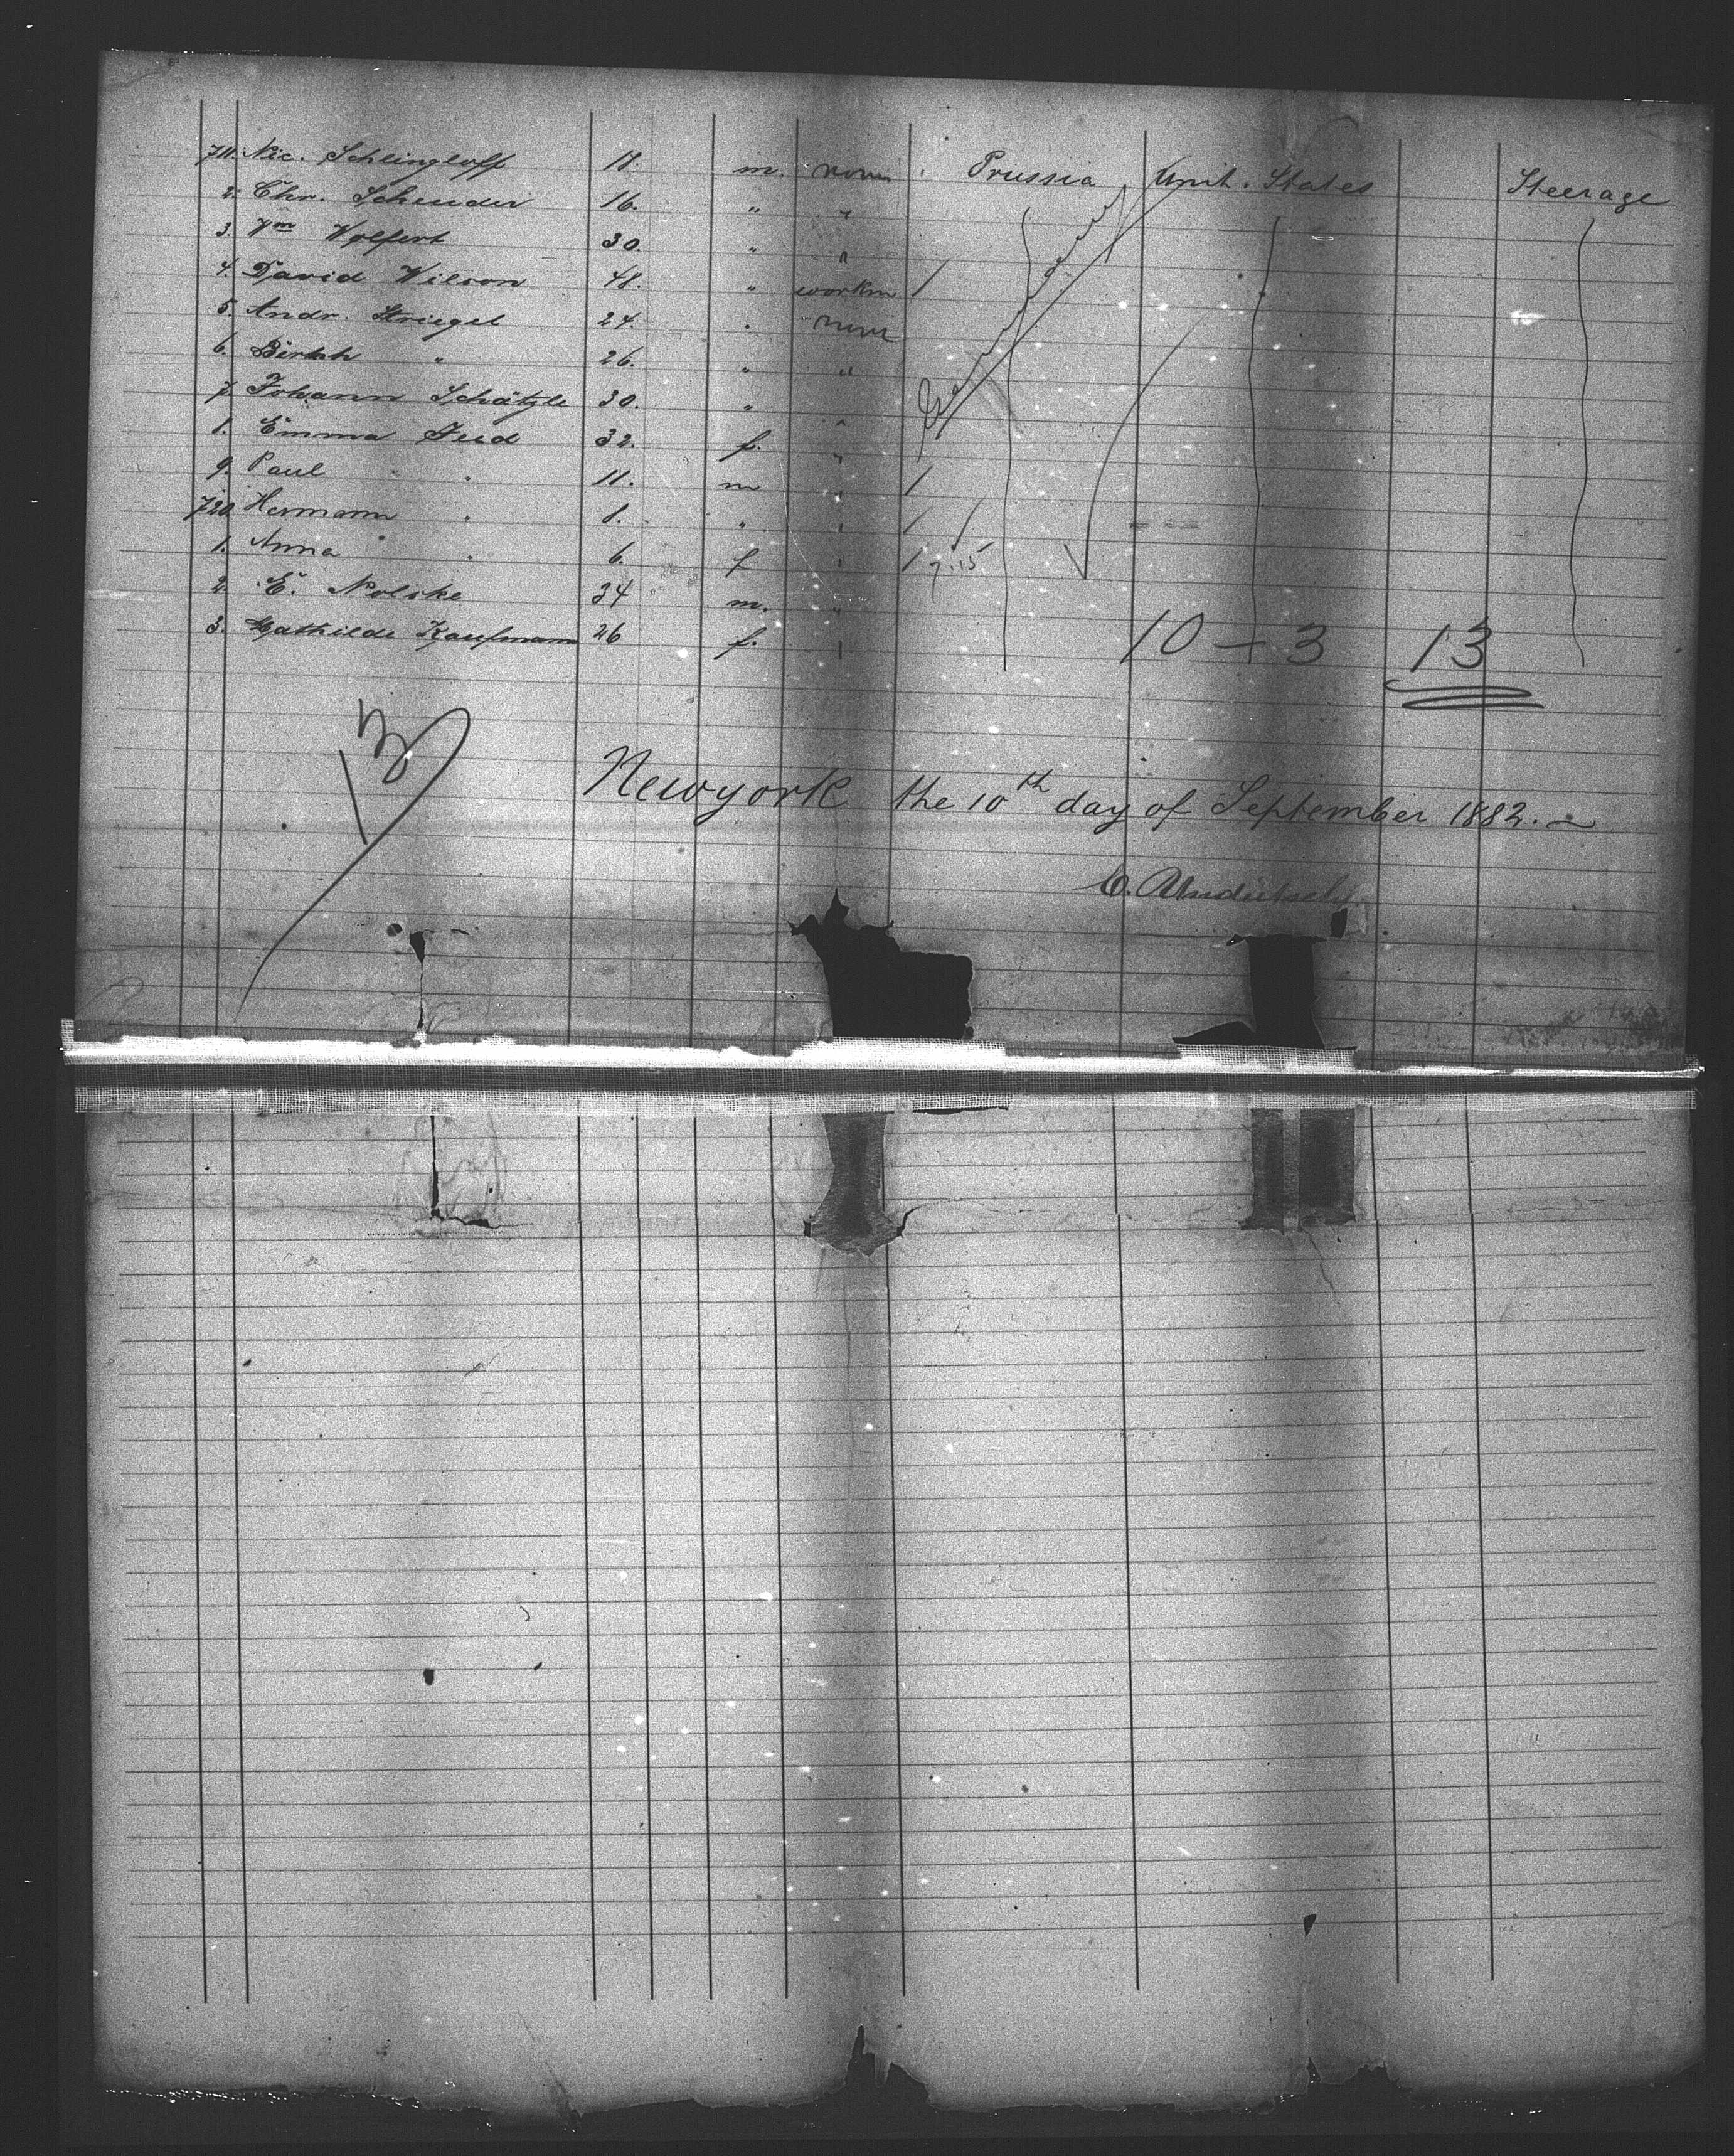 711. Nic. Schlingloff 18. m. none Prussia Unit. States Steerage
2. Chr. Schender 16. " "
3. Wm Wolfert 30. " "
4. David Wilson 48. " workm 1
5. Andr. Striegel 24. " none
6. " 26. " "
7. Johann Schätzle 30. " "
1. Emma 32. f. "
9. Paul " 11. m " 1
720. Hermann " 8. " " 1
1. Anna " 6. f " 1 7.15
2. E. Nolske 34 m. "
3. Mathilde Kaufmann 26 f. "
Germany
10 - 3 13
13
Newyork the 10th day of September 1882.